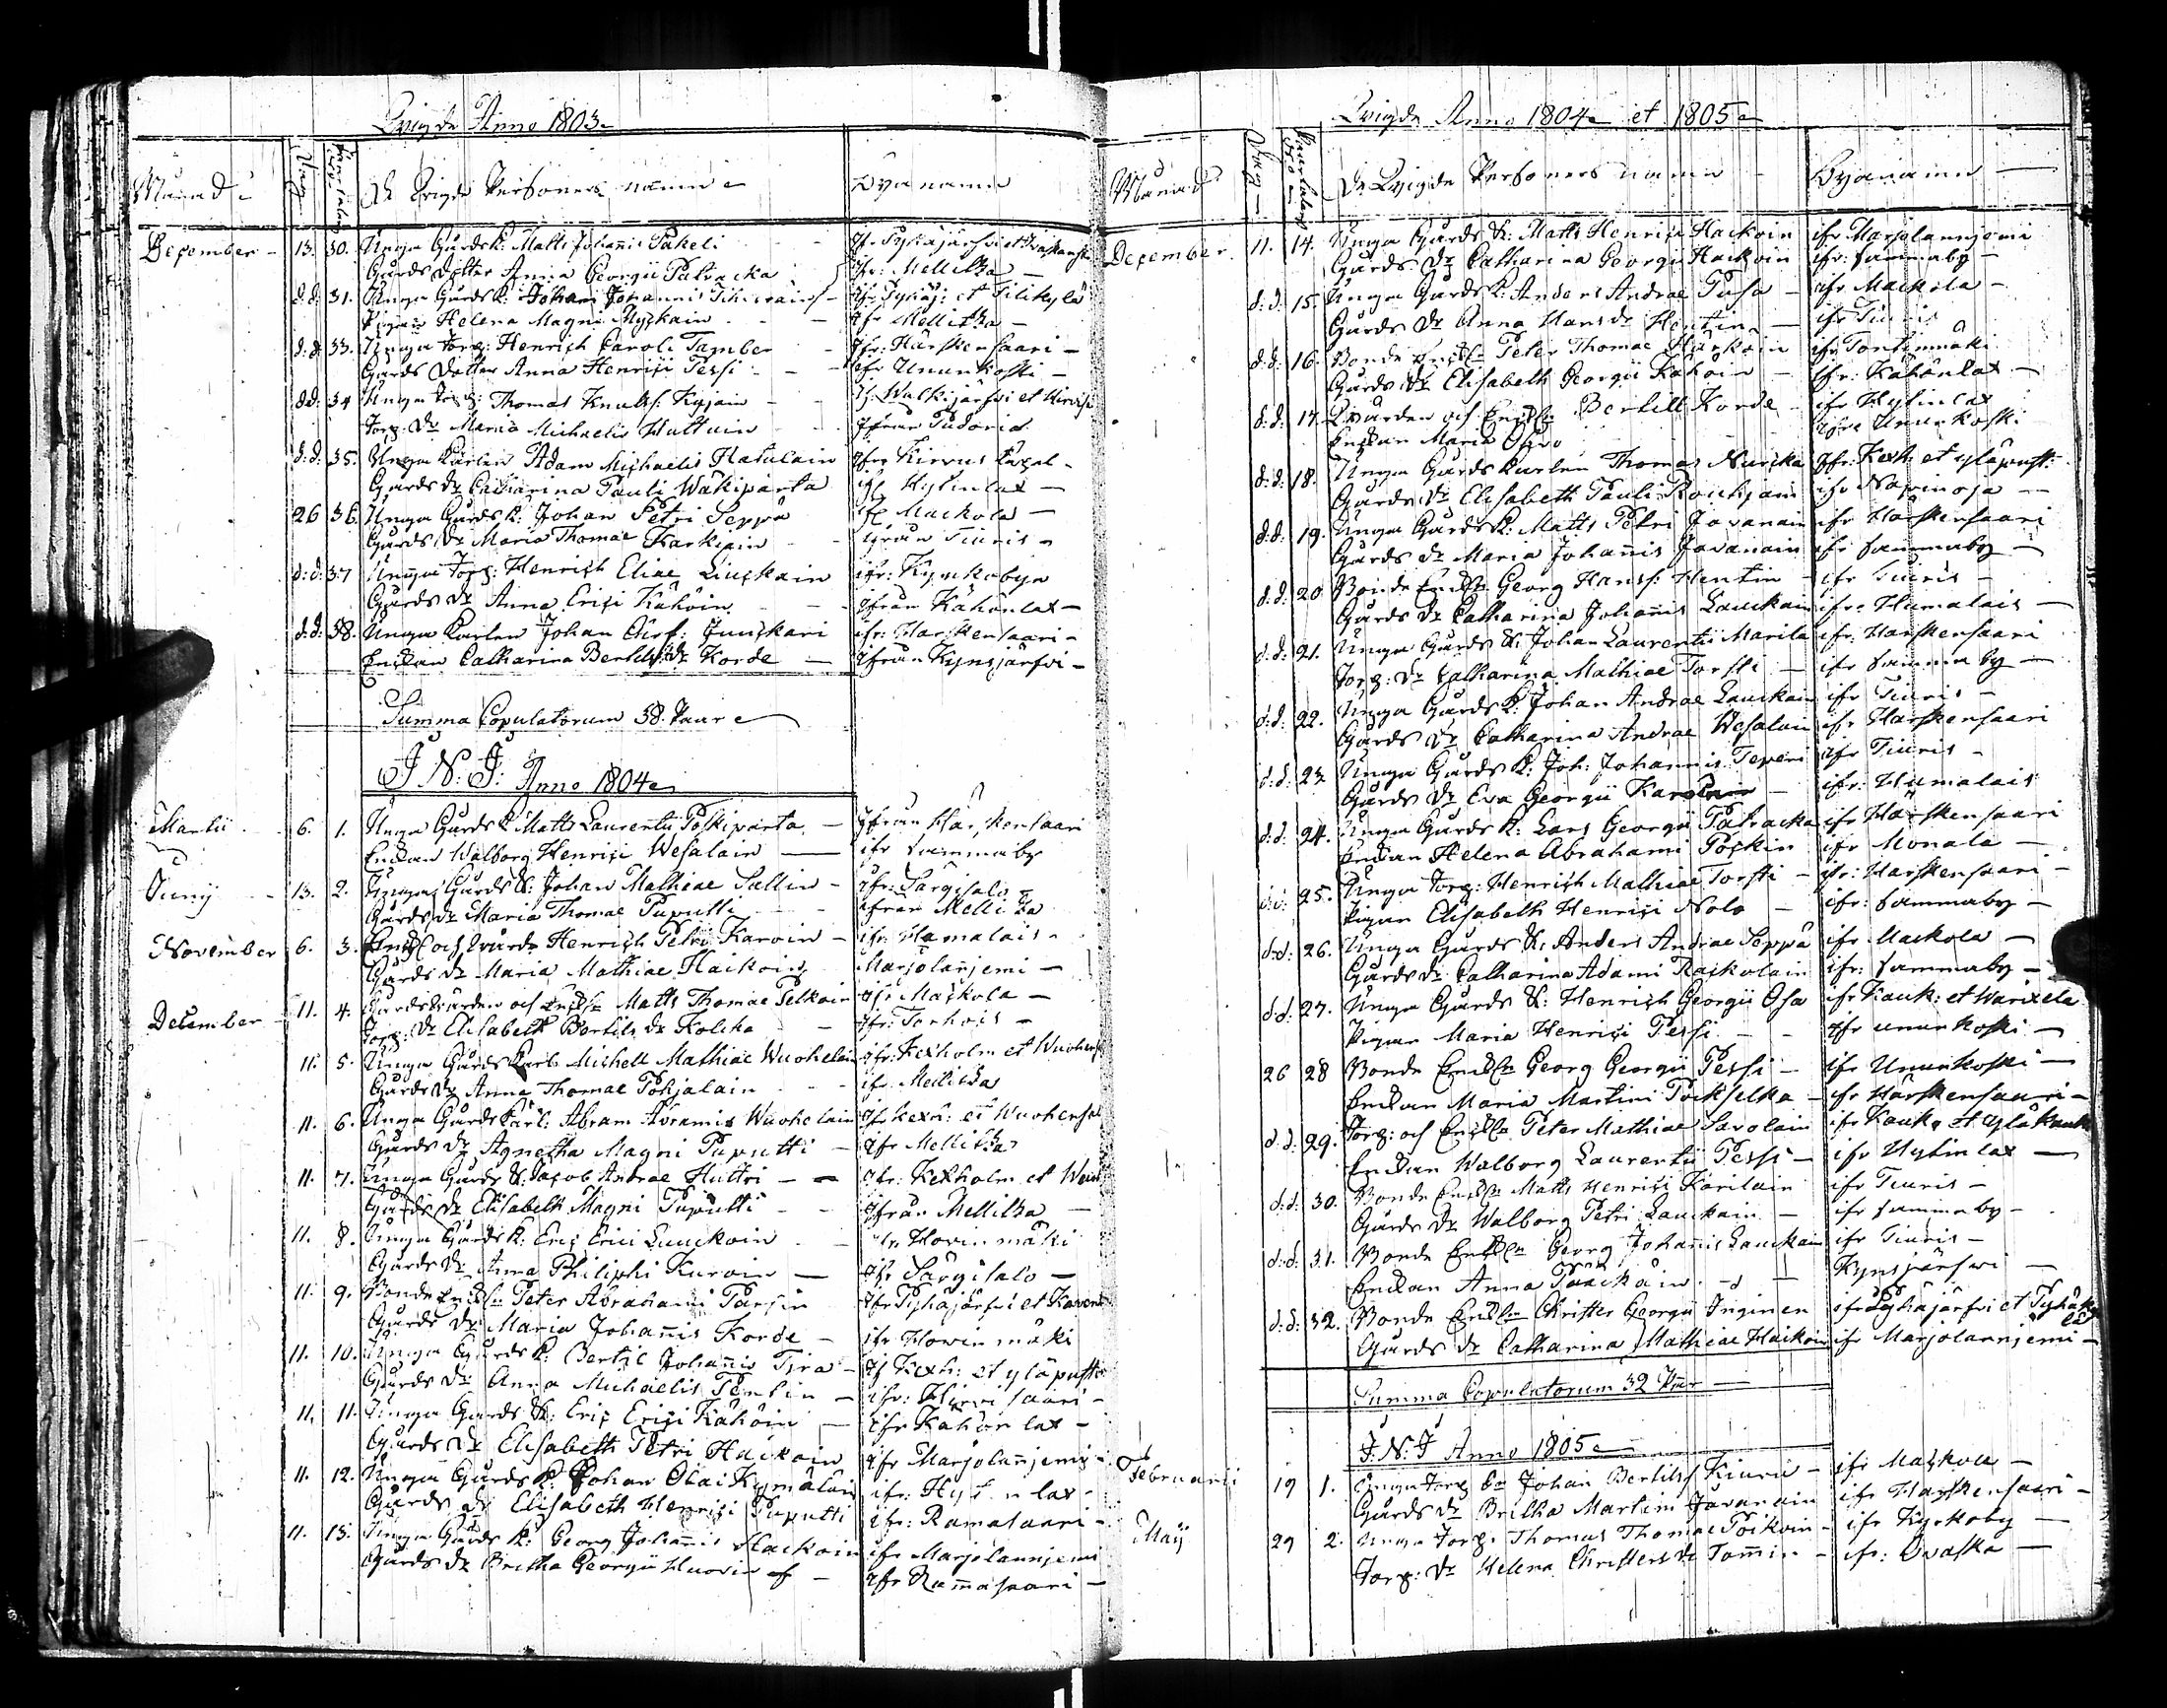 Wigde Anno 1803
Månad
Dag
De Wigde Personers namn
Byanamn
December 13. 30. Unga Gårds K: Matts Johannis Pakeli
Gårds Dotter Anna Georgii Patracka ifr: Mellitza
d:d: 31. Unga Gårds K: Johan Johannis ifr Pyhäj: et Tilikylä
Pigan Helena Magni Myckain ifr Mellitza
d:d: 33. Unga Torp: Henrich Caroli Tamber ifr: Harskensaari
Gårds Dotter Anna Henrici Pessi ifr Ununkoski
d:d: 34 Unga Torp: Thomas Knutss. Kyjain
Torp: Dr Maria Michaelis Huttuin ifrån
d:d: 35. Unga Karlen Adam Michaelis Hatulain ifr: Kirvus Capel
Gårds Dr Catharina Pauli Wäkiparta if Hytinlax
26 36. Unga Gårds K: Johan Petri Seppä if Mackola
Gårds Dr Maria Thomae Karkiain ifrån Tiuris
d:d: 37 Unga Torp: Henrich Eliae Liuckain ifr: Kynkobyn
Gårds Dr Anna Erici Kähöin ifrån Kähönlax
d:d: 38. Unga Karlen Johan Junskari ifr: Harskensaari
Enckan Catharina Bertils Dr Korde ifrån Kynsjärfvi
Summa Copulatorum 38. Paar
J. N: J: Anno 1804
Martii 6. 1. Unga Gårds K Matts Laurentii Poskiparta ifrån Harskensaari
Enckan Walborg Henrici Wesalain ifr Sammaby
Junij 13. 2. Unga Gårds K: Johan Mathiae Sallin ifr: Särgisalo
Gårds Dr Maria Thomae Puputti ifrån Mellitza
November 6. 3. Enckl och Henrich Petri Karoin ifr: Hamalais
Gårds Dr Maria Mathiae Haikoin Marjolanjemi
December 11. 4. Gårdsvärden och Enckln Matts Thomae Pelkoin ifr Mackola
Torp: Dr Elisabeth Bertils Dr Kolcka ifr: Torhois
11. 5. Unga Gårds Karl Michell Mathiae Wuohelain ifr: Kexholm et
Gårds Dr Anna Thomae Pohjalain ifr Mellitza
11. 6. Unga Gårds Karl: Abram Abramis Wuohelain ifr Kexh: et Wuohensal
Gårds Dr Agnetha Magni Puputti ifr Mellitza
11. 7. Unga Gårds K: Jacob Andrae Huttri ifr: Kexholm et
Gårds Dr Elisabeth Magni Puputti ifrån Mellitza
11. 8. Unga Gårds K: Eric Erici Luuckoin ifr Hovinmäki
Gårds Dr Anna Philiphi Kuroin ifr Särgisalo
11. 9. Bonde Enckln Peter Abrahami Parsin ifr Pyhäjärfvi et
Gårds Dr Maria Johannis Korde ifr Hovinmäki
11. 10. Unga Gårds K: Bertil Johannis Tira if Kexh: et yläpusti
Gårds Dr Anna Michaelis Pentin ifr: Hirvisaari
11. 11. Unga Gårds K: Eric Erici Kähöin ifr Kähönlax
Gårds Dr Elisabeth Petri Hackoin ifr Marjolanjemi
11. 12. Unga Gårds K: Johan Olai Kymäläin ifr: Hytinlax
Gårds Dr Elisabeth Henrici Puputti ifr: Ramasaari
11. 13. Unga Gårds K: Georg Johannis Hackoin ifr Marjolannjemi
Gårds Dr Bretha Georgii Huovin ifr Ramasaari
Wigde Anno 1804 et 1805
Månad
Dag
De Wigde Personers namn
Byanamn
December. 11. 14. Unga Gårds K: Matts Henrici Hackoin ifr Marjolannjemi
Gårds: Dr Catharina Georgii Hackoin ifr: Sammaby
d:d: 15. Unga Gårds K: Anders Andrae Pusa ifr Mackola
Gårds Dr Anna Hans Dr Hentin ifr Tiuris
d:d: 16. Bonde Enckln Peter Thomae Harkoin ifr Tontinmäki
Gårds Dr Elisabeth Georgii Kähöin ifr: Kähönlax
d:d: 17. och Enckln Bertill Korde ifr Hytinlax
Enckan Maria ifr Ununkoski
d:d: 18. Unga Gårds Karlen Thomas Nurcka ifr: Kexh: et yläpust:
Gårds Dr Elisabeth Pauli ifr
d:d: 19. Unga Gårds K: Matts Petri Javanain ifr Harskensaari
Gårds Dr Maria Johannis Javanain ifr Sammaby
d:d: 20 Bonde Enckln Georg Hanss: Hentin ifr Tiuris
Gårds Dr Catharina Johannis Lauckain ifr: Humalais
d:d: 21. Unga Gårds K: Johan Laurentii Marila ifr: Harskensaari
Torp: Dr Catharina Mathiae Torsti ifr Sammaby
d:d: 22. Unga Gårds K: Johan Andrae Lauckain ifr Tiuris
Gårds Dr Catharina Andrae Wesalain ifr Harskensaari
d:d: 23 Unga Gårds K: Joh: Johannis Teperi ifr Tiuris
Gårds Dr Eva Georgii ifr: Humalais
d:d: 24. Unga Gårds K: Lars Georgii Patracka ifr Harskensaari
Enckan Helena Abrahami Poskin ifr Monala
d:d: 25. Unga Torp: Henrich Mathiae Torsti ifr: Harskensaari
Pigan Elisabeth Henrici Nolo ifr: Sammaby
d:d: 26. Unga Gårds K: Anders Andrae Seppä ifr Mackola
Gårds Dr Catharina Adami Raskolain ifr: Sammaby
d:d: 27. Unga Gårds K: Henrich Georgii Osa ifr Kauk: et
Pigan Maria Henrici Pessi ifr ununkoski
26 28 Bonde Enckln Georg Georgii Pessi ifr Ununkoski
Enckan Maria Martini Pockselka ifr Harskensaari
d:d: 29. Torp: och Enckln Peter Mathiae Savolain ifr Kauk. et yläkauk
Enckan Walborg Laurentii Pessi ifr Hytinlax
d:d: 30. Bonde Enckln Matts Henrici Karilain ifr Tiuris
Gårds Dr Walborg Petri Lauckain ifr Sammaby
d:d: 31. Bonde Enckln Georg Johannis Lauckain ifr Tiuris
Enckan Anna Kynsjärfwi
d:d: 32. Bonde Enckln Christer Georgii Inginen ifr Pyhäjärfvi et
Gårds Dr Catharina Mathiae Haikoin ifr Marjolannjemi
Summa Copulatorum 32 Paar
J. N: J Anno 1805
Februarii 19 1. Unga Torp Johan Bertilss Kiuru ifr Mackola
Gårds Dr Britha Martini Javanain ifr Harskensaari
Maij 29 2. Unga Torp. Thomas Thomae Poikoin ifr Kyrkoby
Torp: Dr Helena Christers Dr Tommin ifr: Ovaska